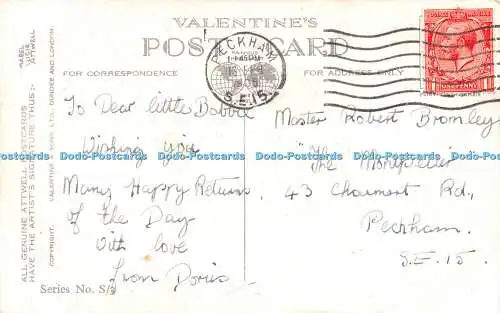 VALENTINE'S
POST CARD
FOR CORRESPONDENCE
FOR ADDRESS ONLY
PECKHAM
S.E.15
POSTAGE REVENUE
ONE PENNY
MABEL
LUCIE
ATTWELL
ALL GENUINE ATTWELL POSTCARDS
HAVE THE ARTIST'S SIGNATURE THUS:-
COPYRIGHT. VALENTINE & SONS, LTD. DUNDEE AND LONDON.
To Dear little Bobbie
Wishing you
Many Happy Returns
of the Day
With love
from Doris
Master Robert Bromley
"The Montpelier"
43 Choumert Rd.,
Peckham.
S.E. 15.
Series No. S/5
Dodo-Postcards Dodo-Postcards Dodo-Postcards Dodo-Postcards Dodo-Postcards